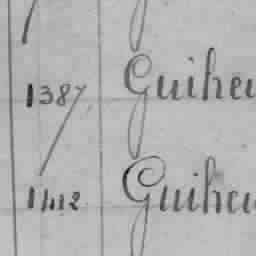 1387 Guiheu
1412 Guiheu